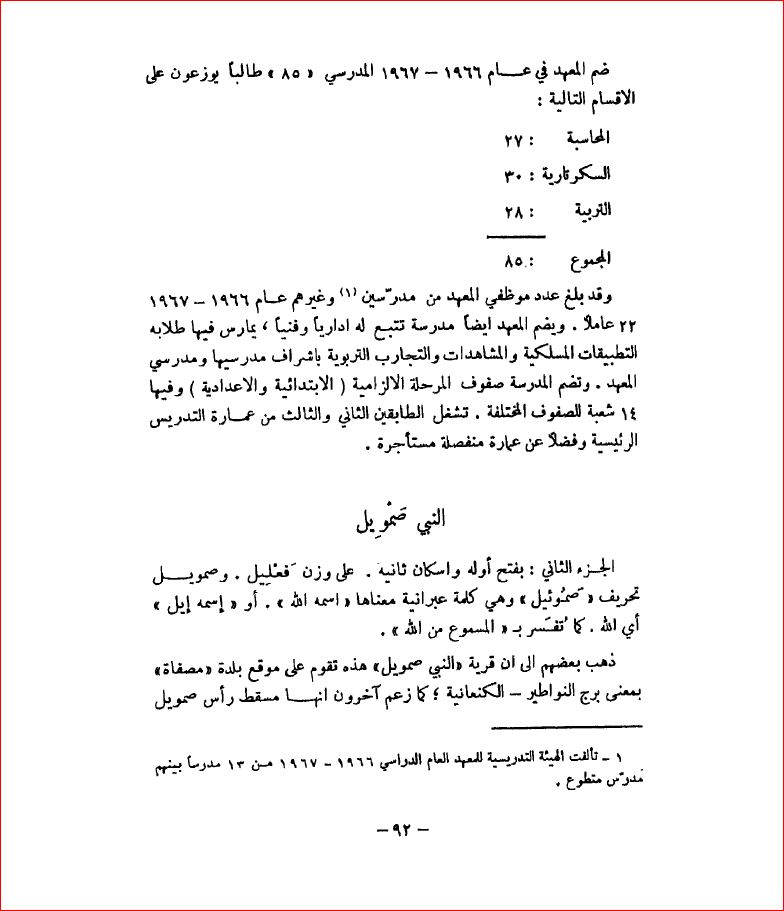 ضم المعهد في عـــام ١٩٦٦ – ١٩٦٧ المدرسي « ٨٥ » طالباً يوزعون على
الاقسام التالية :
المحاسبة : ٢٧
السكرتارية : ٣٠
التربية : ٢٨
المجموع : ٨٥
وقد بلغ عدد موظفي المعهد من مدرّسين (١) وغيرهم عـام ١٩٦٦ – ١٩٦٧
٢٢ عاملاً . ويضم المعهد ايضاً مدرسة تتبع له ادارياً وفنياً ، يمارس فيها طلابه
التطبيقات المسلكية والمشاهدات والتجارب التربوية باشراف مدرسيها ومدرسي
المعهد . وتضم المدرسة صفوف المرحلة الالزامية ( الابتدائية والاعدادية ) وفيها
١٤ شعبة للصفوف المختلفة . تشغل الطابقين الثاني والثالث من عمـارة التدريس
الرئيسية وفضلاً عن عمارة منفصلة مستأجرة .
النبي صَمْوِيل
الجـزء الثاني : بفتح أوله واسكان ثانيه . على وزن فَعْلِيل . وصمويـــل
تحريف « صَمُوئيل » وهي كلمة عبرانية معناها « اسمه الله » . أو « إسمه إيل »
أي الله . كما تُفسَر بـ « المسموع من الله » .
ذهب بعضهم الى ان قرية «النبي صمويل» هذه تقوم على موقع بلدة «مصفاة»
بمعنى برج النواطير – الكنعانية ؛ كما زعم آخرون انهـــا مسقط رأس صمويل
١ – تألفت الهيئة التدريسية للمعهد العام الدراسي ١٩٦٦ – ١٩٦٧ مـن ١٣ مدرساً بينهم
مدرّس متطوع .
– ٩٢ –